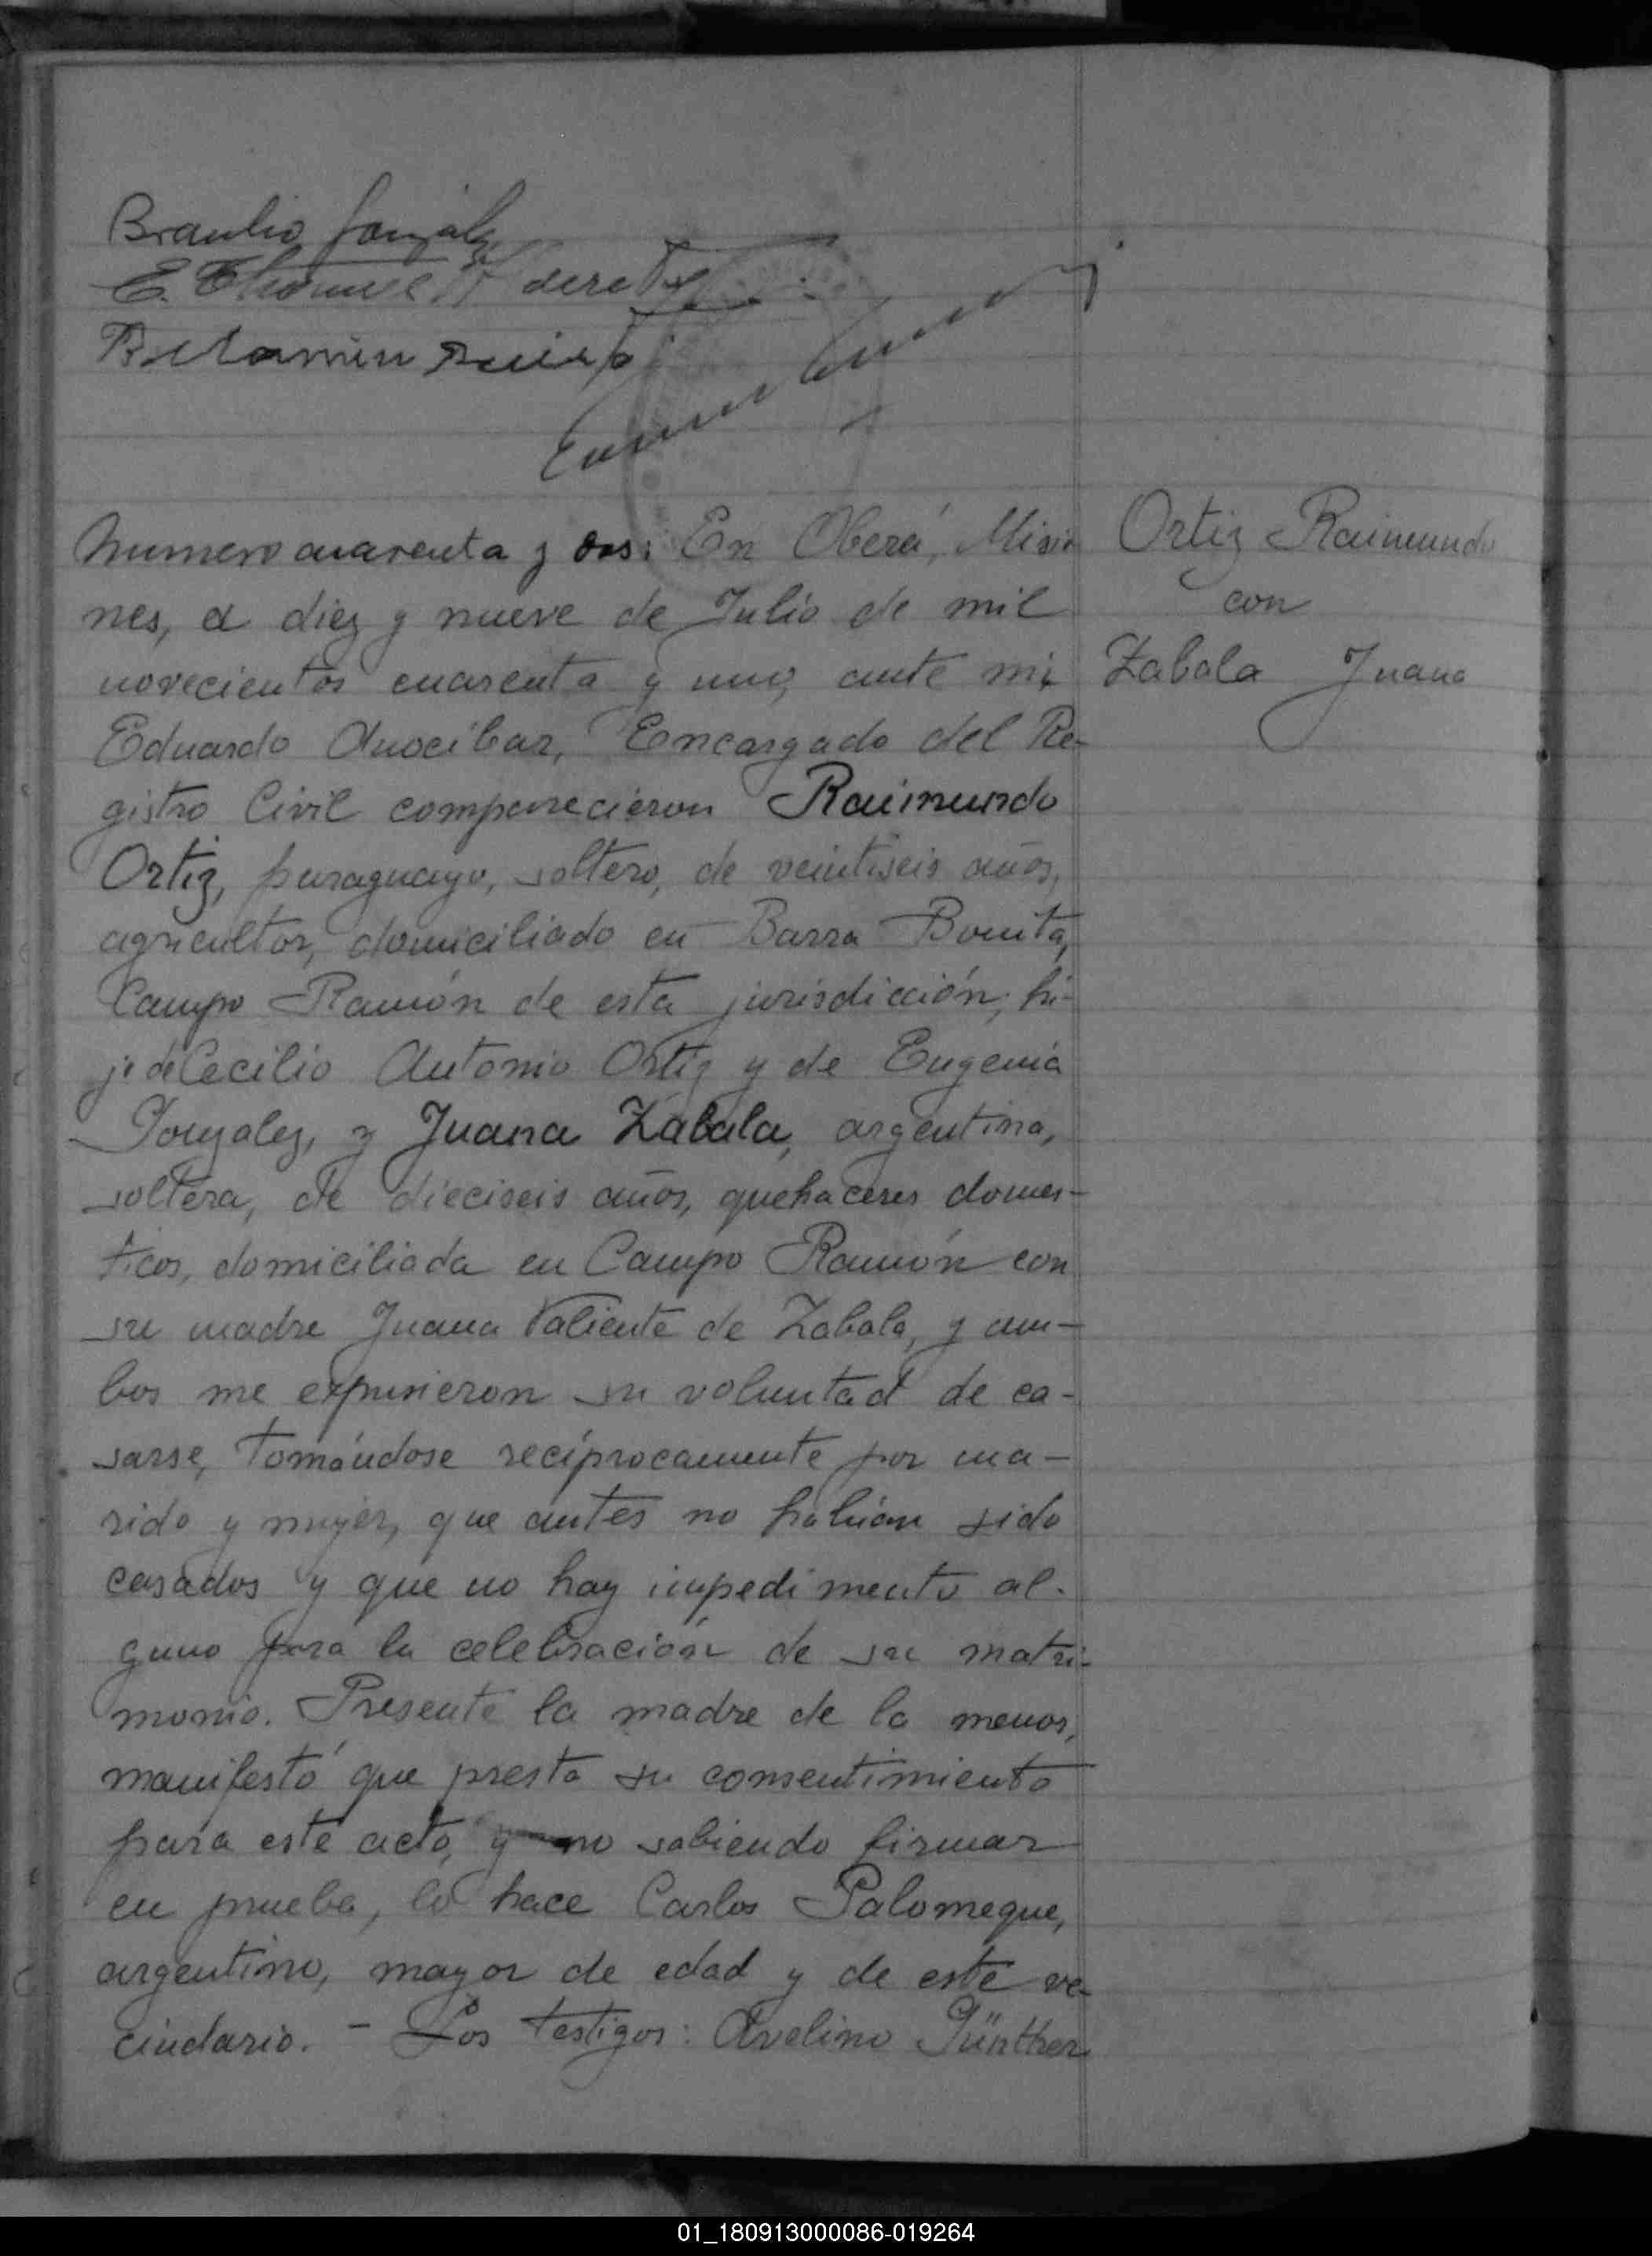 Braulio González
E.
Numero cuarenta y dos: En Oberá, Misio
nes, a diez y nueve de Julio de mil
novecientos cuarenta y uno, ante mi,
Eduardo Anocibar, Encargado del Re-
gistro Civil comparecieron Raimundo
Ortiz, paraguayo, soltero, de veintiseis años,
agricultor, domiciliado en Barra Bonita,
Campo Ramón de esta jurisdicción, hi-
jo de Cecilio Antonio Ortiz y de Eugenia
Gonzalez, y Juana Zabala, argentina,
soltera, de dieciseis años, quehaceres domes-
ticos, domiciliada en Campo Ramón con
su madre Juana Valiente de Zabala, y am-
bos me expusieron su voluntad de ca-
sarse, tomándose recíprocamente por ma-
rido y mujer, que antes no habían sido
casados y que no hay impedimento al-
guno para la celebración de su matri-
monio. Presente la madre de la menor,
manifestó que presta su consentimiento
para este acto, y no sabiendo firmar
en prueba, lo hace Carlos Palomeque,
argentino, mayor de edad y de este ve-
cindario. - Los testigos: Avelino Günther
Ortiz Raimundo
con
Zabala Juana
01_180913000086-019264